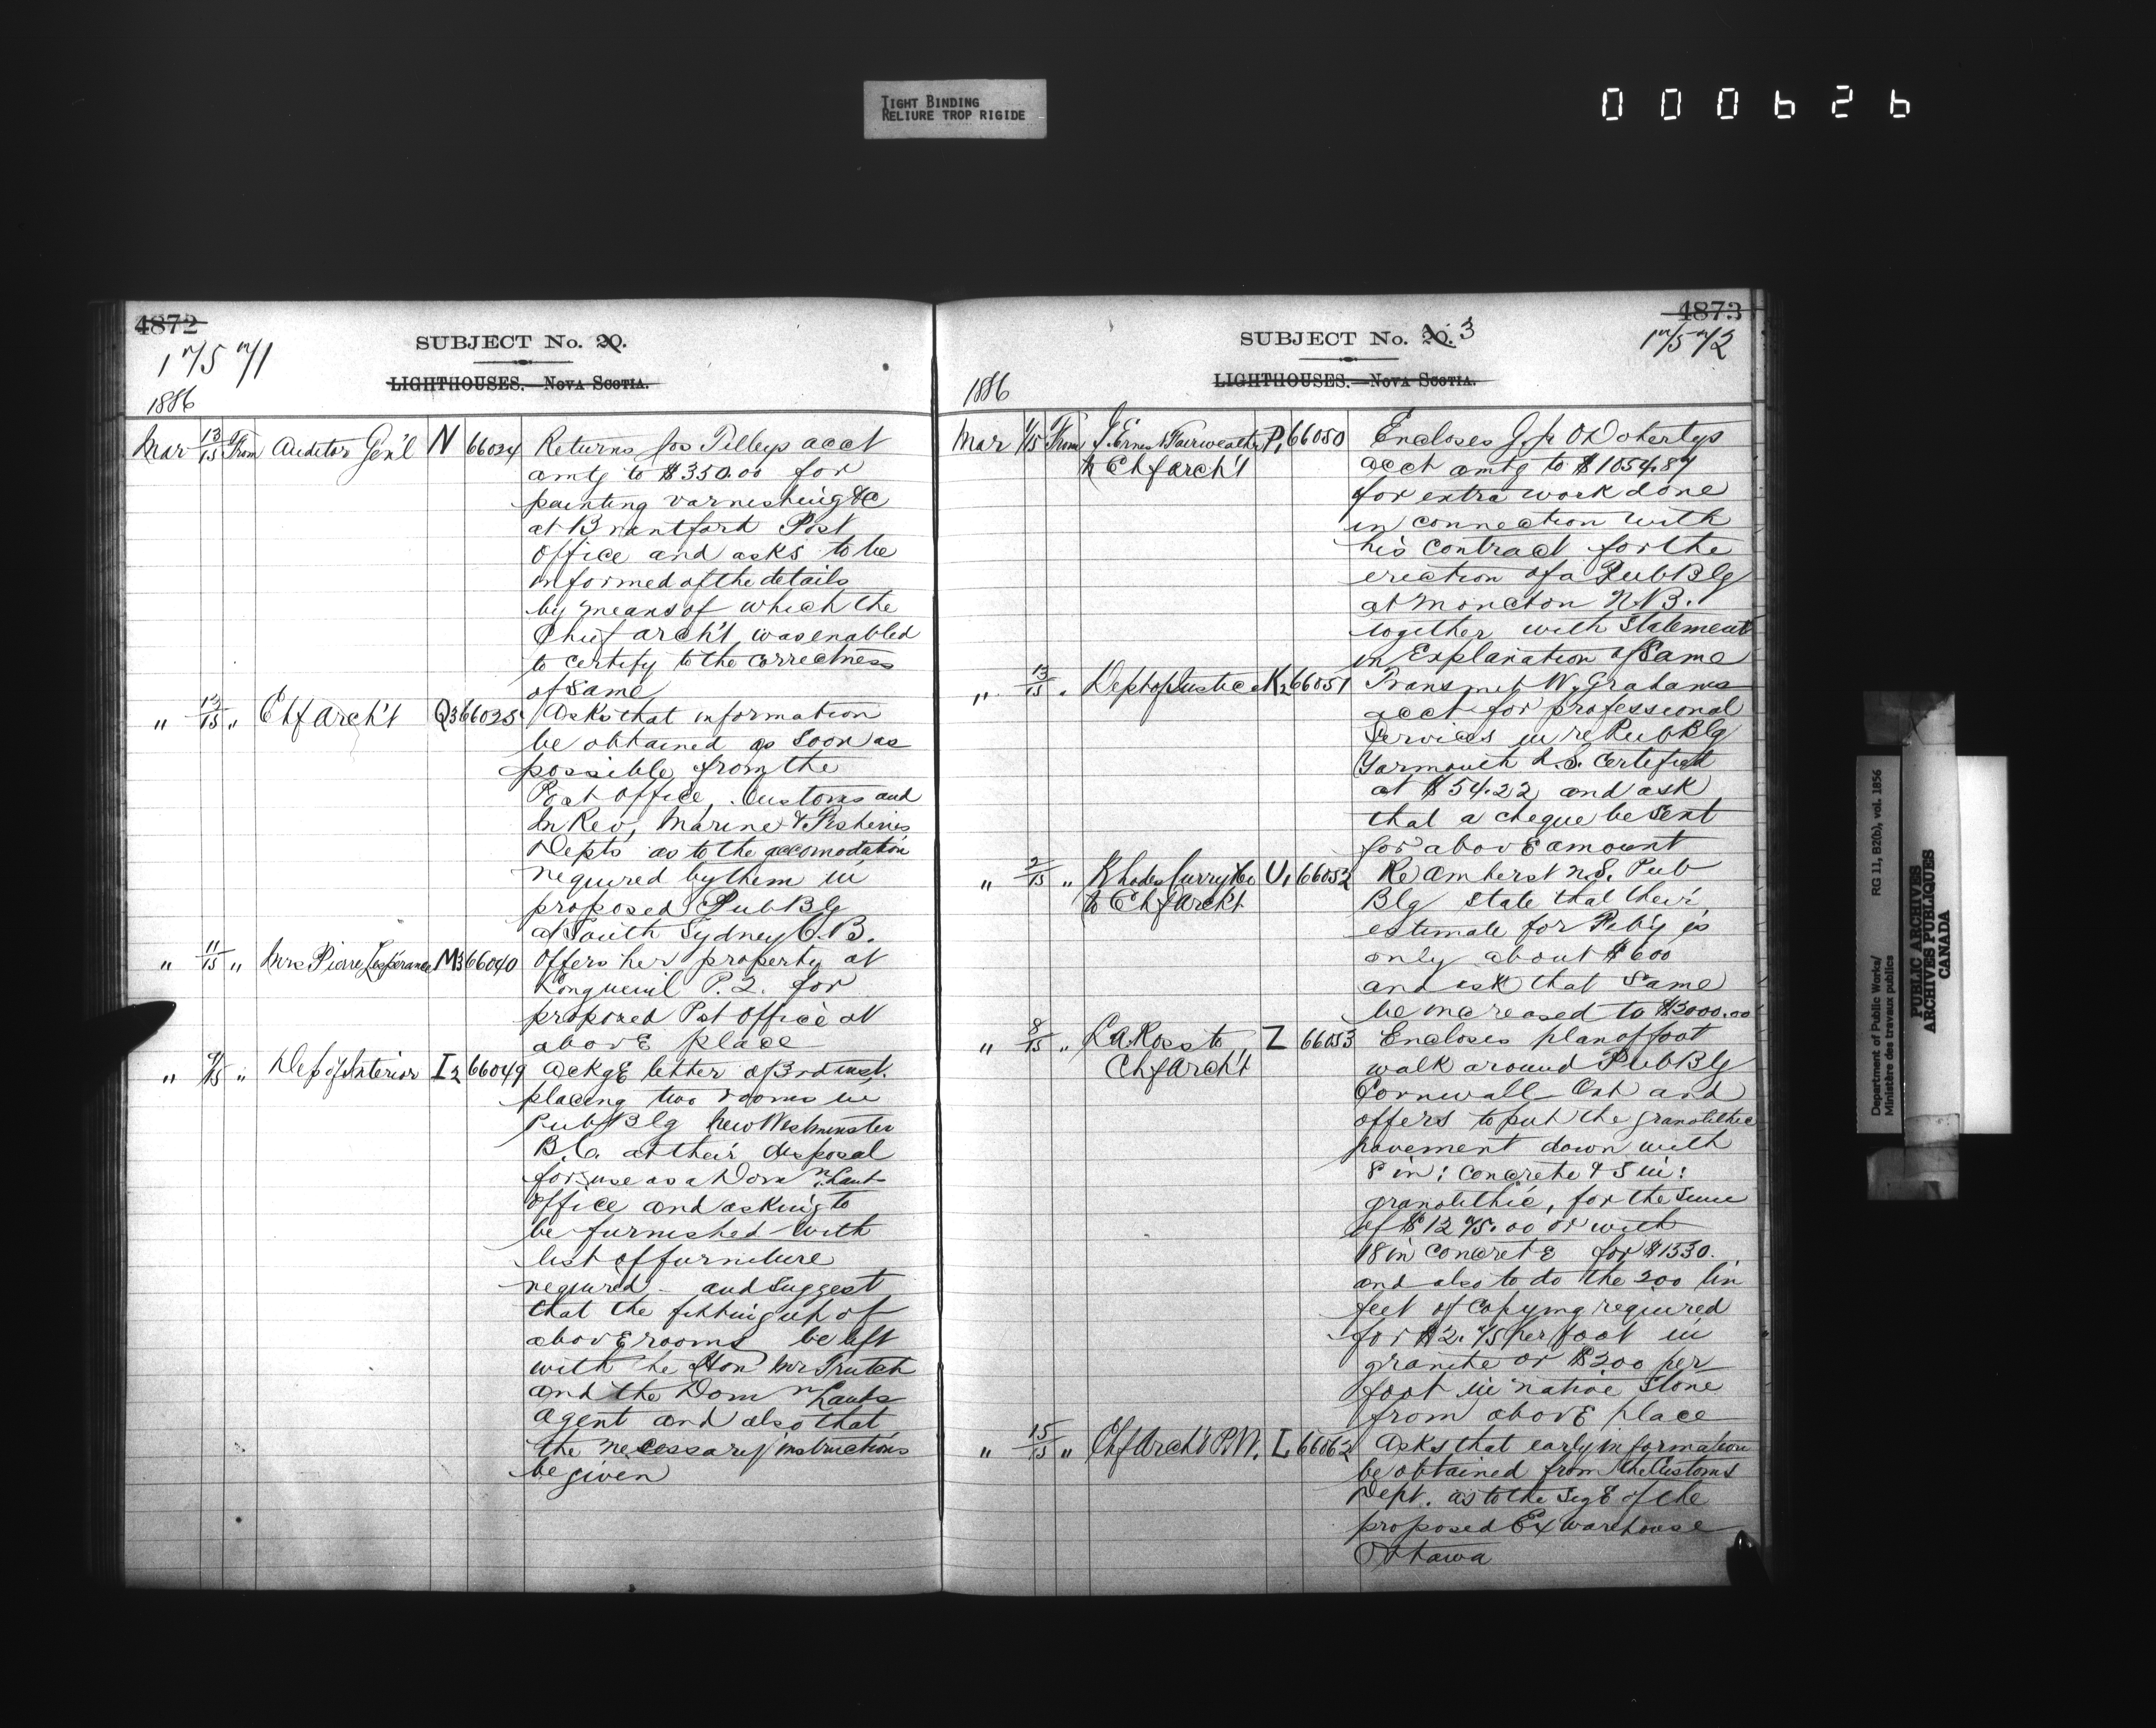 TIGHT BINDING
RELIURE TROP RIGIDE
000626
4872
SUBJECT No. 20.
1751
LIGHTHOUSES.—NOVA SCOTIA.
1886
Mar 13/15 From Auditor Gen'l N 66024 Returns Jos Tilleys acct
amtg to $350.00 for
painting varnishing &c
at Brantford Post
Office and asks to be
informed of the details
by means of which the
Chief arch't was enabled
to certify to the correctness
of same
" 13/15 " Chf Arch't Q3 66025 Asks that information
be obtained as soon as
possible from the
Post Office, Customs and
In Rev, Marine & Fisheries
Depts as to the accomodation
required by them in
proposed Pub Blg
at South Sydney C.B.
" 11/15 " Mrs Pierre Lespérance M3 66040 Offers her property at
Longueuil P.Q. for
proposed Pst Office at
above place
" 9/15 " Dep of Interior I2 66049 Ackge letter of 3rd inst.
placing two rooms in
Pub Blg New Westminster
B.C. at their disposal
for use as a Domn Lands
Office and asking to
be furnished with
list of furniture
required and suggest
that the fitting up of
above rooms be left
with the Hon Mr Trutch
and the Domn Lands
Agent and also that
the necessary instructions
be given
4873
SUBJECT No. 20. 3
1752
LIGHTHOUSES.—NOVA SCOTIA.
1886
Mar 1/15 From J. Ernest Fairweather P1 66050 Encloses J. Jr O'Dohertys
to Chf arch't acct amtg to $1054.87
for extra work done
in connection with
his contract for the
erection of a Pub Blg
at Moncton N.B.
together with statement
in Explanation of same
" 13/15 " Dept of Justice K2 66051 Transmit W. Grahams
acct for professional
services in re Pub Blg
Yarmouth N.S. certified
at $54.22 and ask
that a cheque be sent
for above amount
" 2/15 " Rhodes Curry & Co U1 66052 Re Amherst N.S. Pub
to Chf Arch't Blg state that their
estimate for Feby is
only about $600
and ask that same
be increased to $2000.00
" 8/15 " L A Ross to Z 66053 Encloses plan of foot
Chf Arch't walk around Pub Blg
Cornwall Ont and
offers to put the granolithic
pavement down with
8 in: concrete & 5 in:
granolithic, for the sum
of $1275.00 or with
18 in concrete for $1330.
and also to do the 200 lin
feet of copying required
for $2.75 per foot in
granite or $200 per
foot in native stone
from above place
" 15/15 " Chf Arch't P.W. L 66062 Asks that early information
be obtained from the Customs
Dept. as to the size of the
proposed Ex warehouse
Ottawa
Department of Public Works/ RG 11, B2(b), vol. 1856
Ministère des travaux publics
PUBLIC ARCHIVES
ARCHIVES PUBLIQUES
CANADA